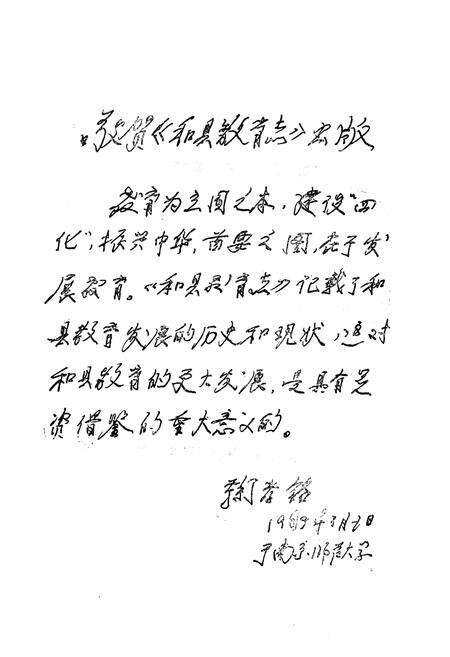 敬贺《和县教育志》出版
教育为立国之本，建设"四
化"，振兴中华，首要之图，在于发
展教育。《和县教育志》记载了和
县教育发展的历史和现状，这对
和县教育的更大发展，是具有足
资借鉴的重大意义的。
孝铭
1989年3月 日
于南京师范大学